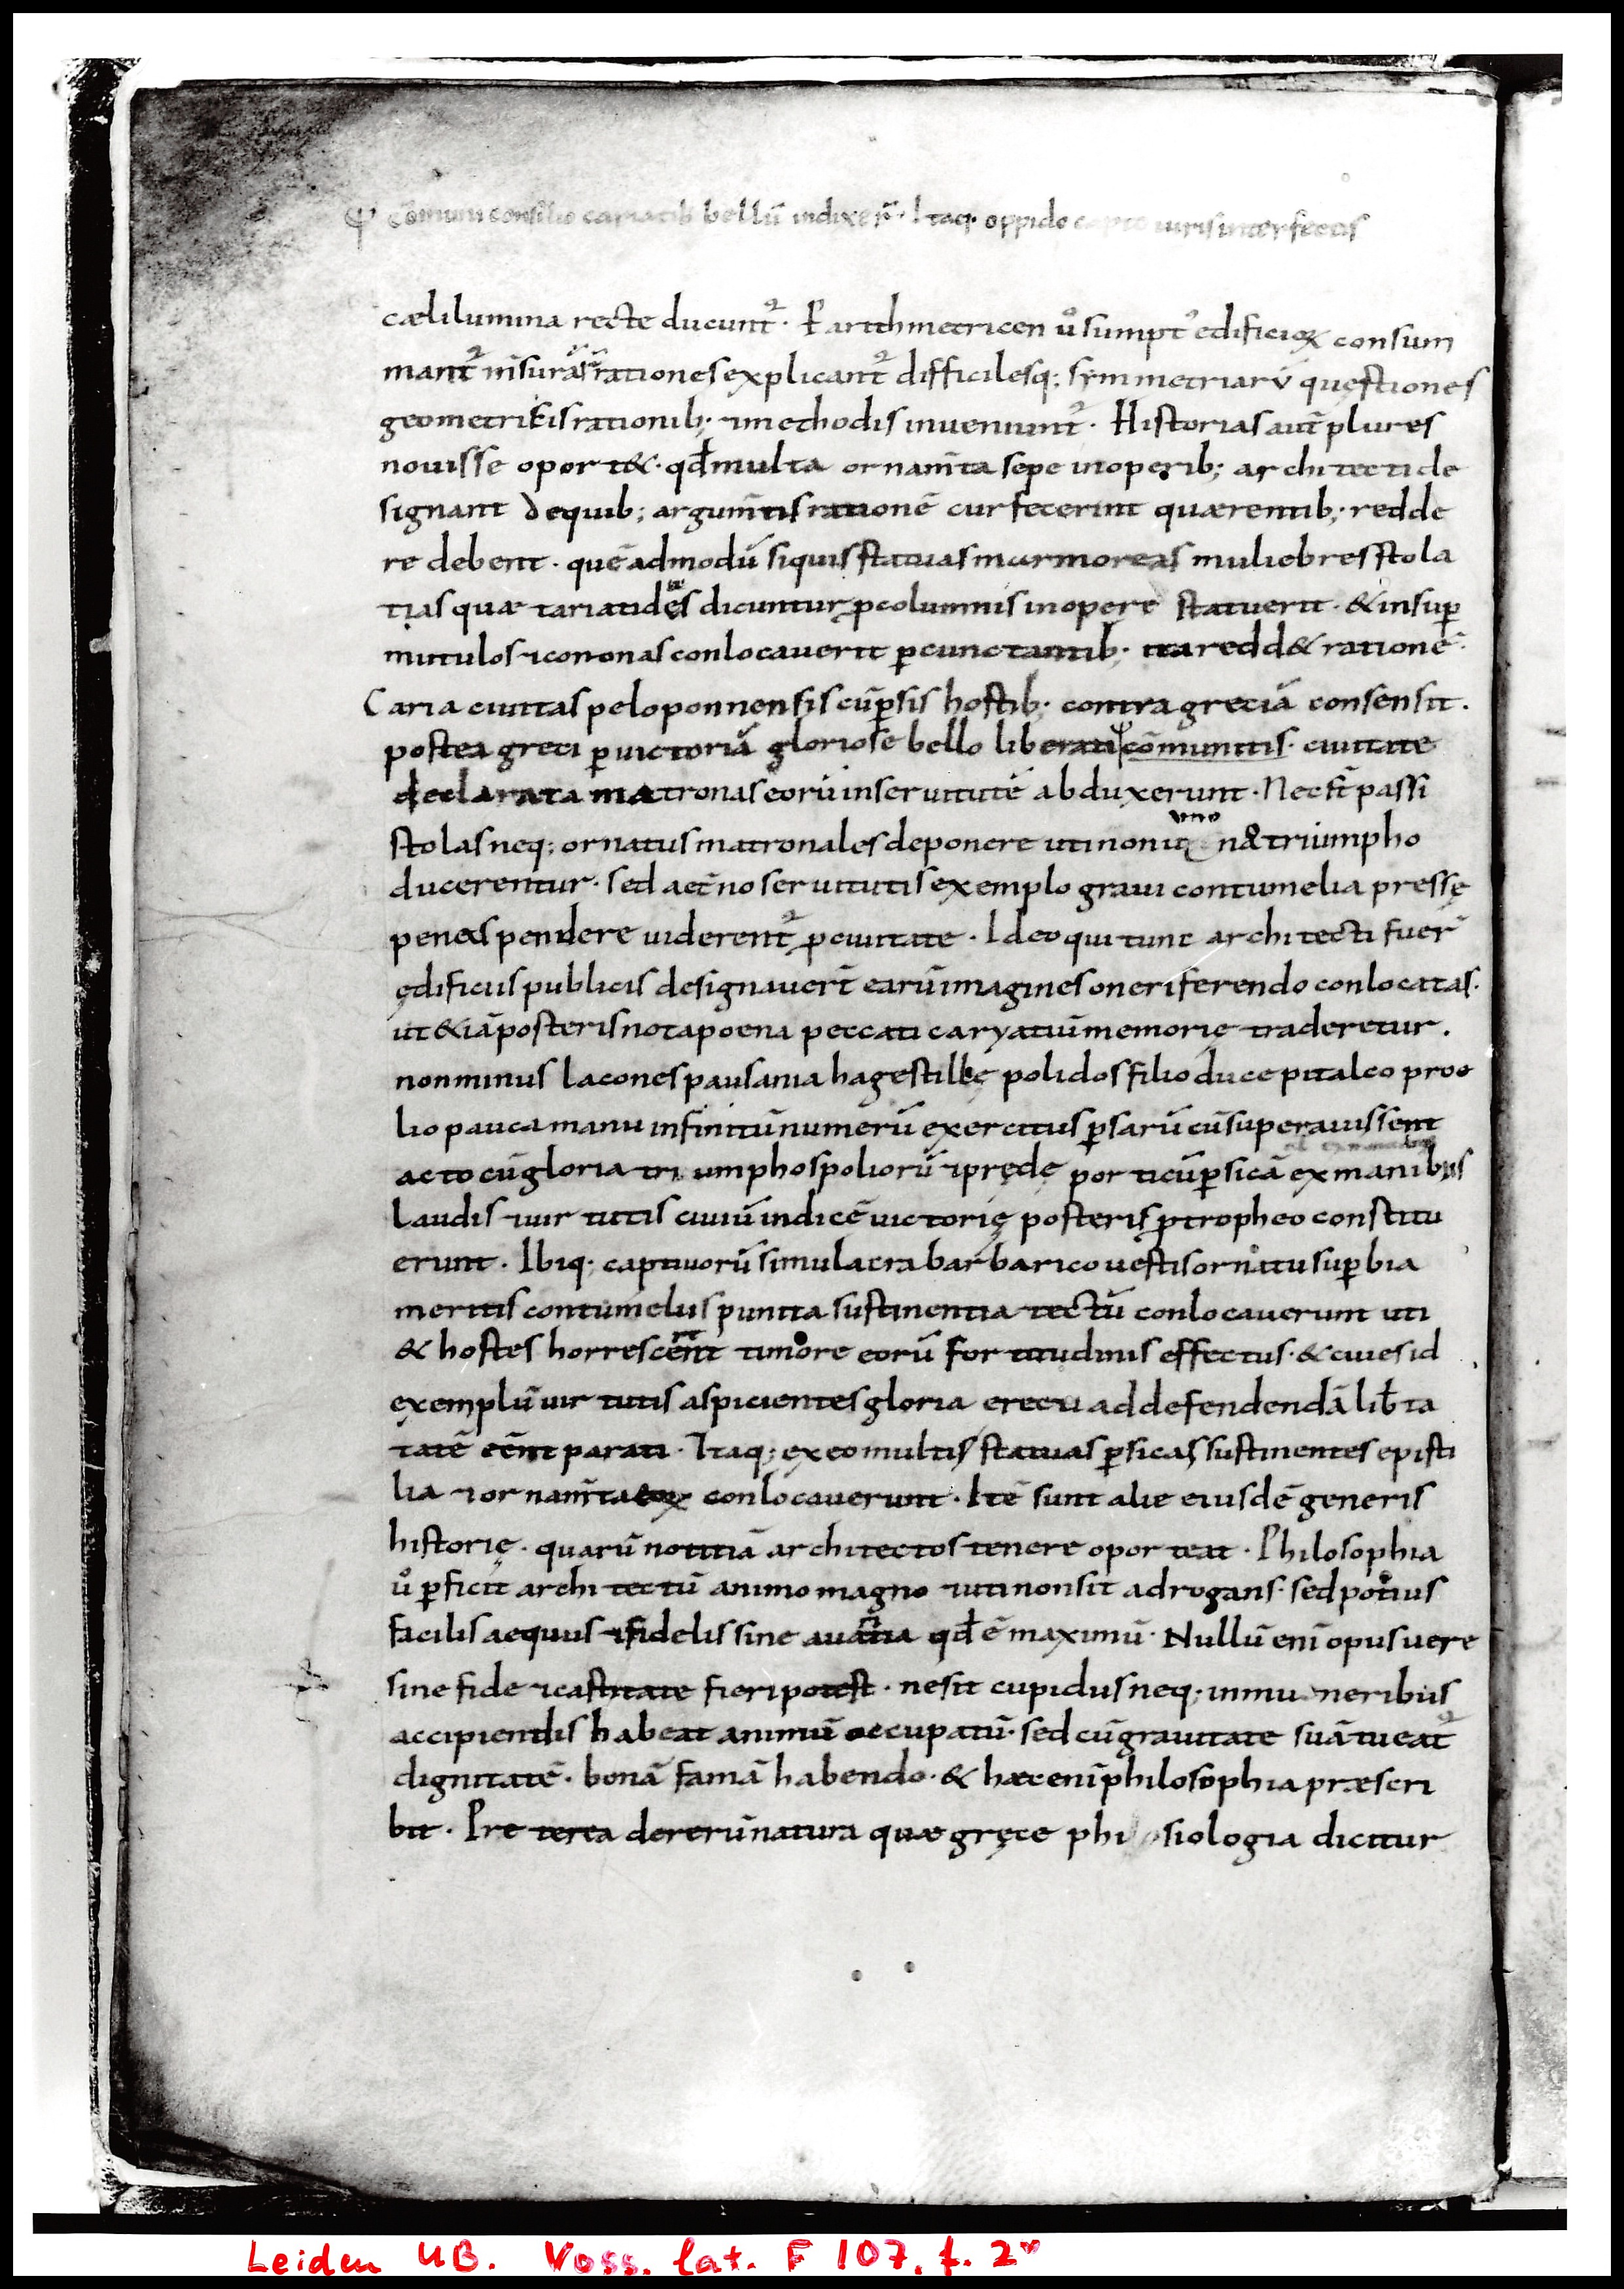 Cōmuni consilio cariatib bellū indixer̄· Itaq· oppido capto uiris interfectis
cæli lumina recte ducunt᷒· P arithmetricen ů sumpt᷒ edificioꝝ consum
mant᷒ m̄surarū rationes explicant᷒ difficilesq; symmetriarū quęstiones
geometricis rationib; ⁊ methodis inueniunt᷒· Historias aut̄ plures
nouisse oport&· qđ multa ornam̄ta sepe in operib; architecti de
signant de quib; argum̄tis rationē cur fecerint quærentib; redde
re debent· quēadmodū siquis statuas marmoreas muliebres stola
tas quæ cariatides dicuntur ꝓ columnis in opere statuerit· & insuꝑ
mutulos ⁊ coronas conlocauerit ꝑcunctantib; ita redd& rationē·
Caria ciuitas peloponnensis cū ꝑsis hostib; contra greciā consensit·
postea greci ꝑ uictoriā gloriose bello liberati cōmunitis· ciuitate
declarata matronas eorū in seruitutē abduxerunt· Nec st̄ passi
stolas neq; ornatus matronales deponere uti non uno n& triumpho
ducerentur· sed aet̄no seruitutis exemplo graui contumelia pressę
penas pendere uiderent᷒ ꝓ ciuitate· Ideo qui tunc architecti fuer̄
ędificiis publicis designauer̄t earū imagines oneri ferendo conlocatas·
ut &iā posteris nota poena peccati caryatiū memorię traderetur·
non minus lacones pausania hagestillę polidos filio duce pitalco proe
lio pauca manu infinitū numerū exercitus ꝑsarū cū superauissent
acto cū gloria triumpho spoliorū ⁊ pręde porticū ꝑsicā ex manibus
laudis ⁊ uirtutis ciuiū indicē uictorię posteris ꝓ tropheo constitu
erunt· Ibiq; captiuorū simulacra barbarico uestis ornatu suꝑbia
meritis contumeliis punita sustinentia tectū conlocauerunt uti
& hostes horrescerent timore eorū fortitudinis effectus· & ciues id
exemplū uirtutis aspicientes gloria erecti ad defendendā lib̄ta
tatē eēnt parati· Itaq; ex eo multi statuas ꝑsicas sustinentes episti
lia ⁊ ornam̄ta eoꝝ conlocauerunt· Itē sunt alie eiusdē generis
historię· quarū notitiā architectos tenere oporteat· Philosophia
ů ꝑficit architectū animo magno ⁊ uti non sit adrogans· sed potius
facilis aequus ⁊ fidelis sine auaritia qđ ē maximū· Nullū eni̅ opus uere
sine fide ⁊ castitate fieri potest· ne sit cupidus neq; in muneribus
accipiendis habeat animū occupatū· sed cū grauitate suā tueat᷒
dignitatē· bonā famā habendo· & hæc eni̅ philosophia præscri
bit· Pre terea de rerū natura quæ gręce phisiologia dicitur
Leiden UB. Voss. lat. F 107, f. 2v